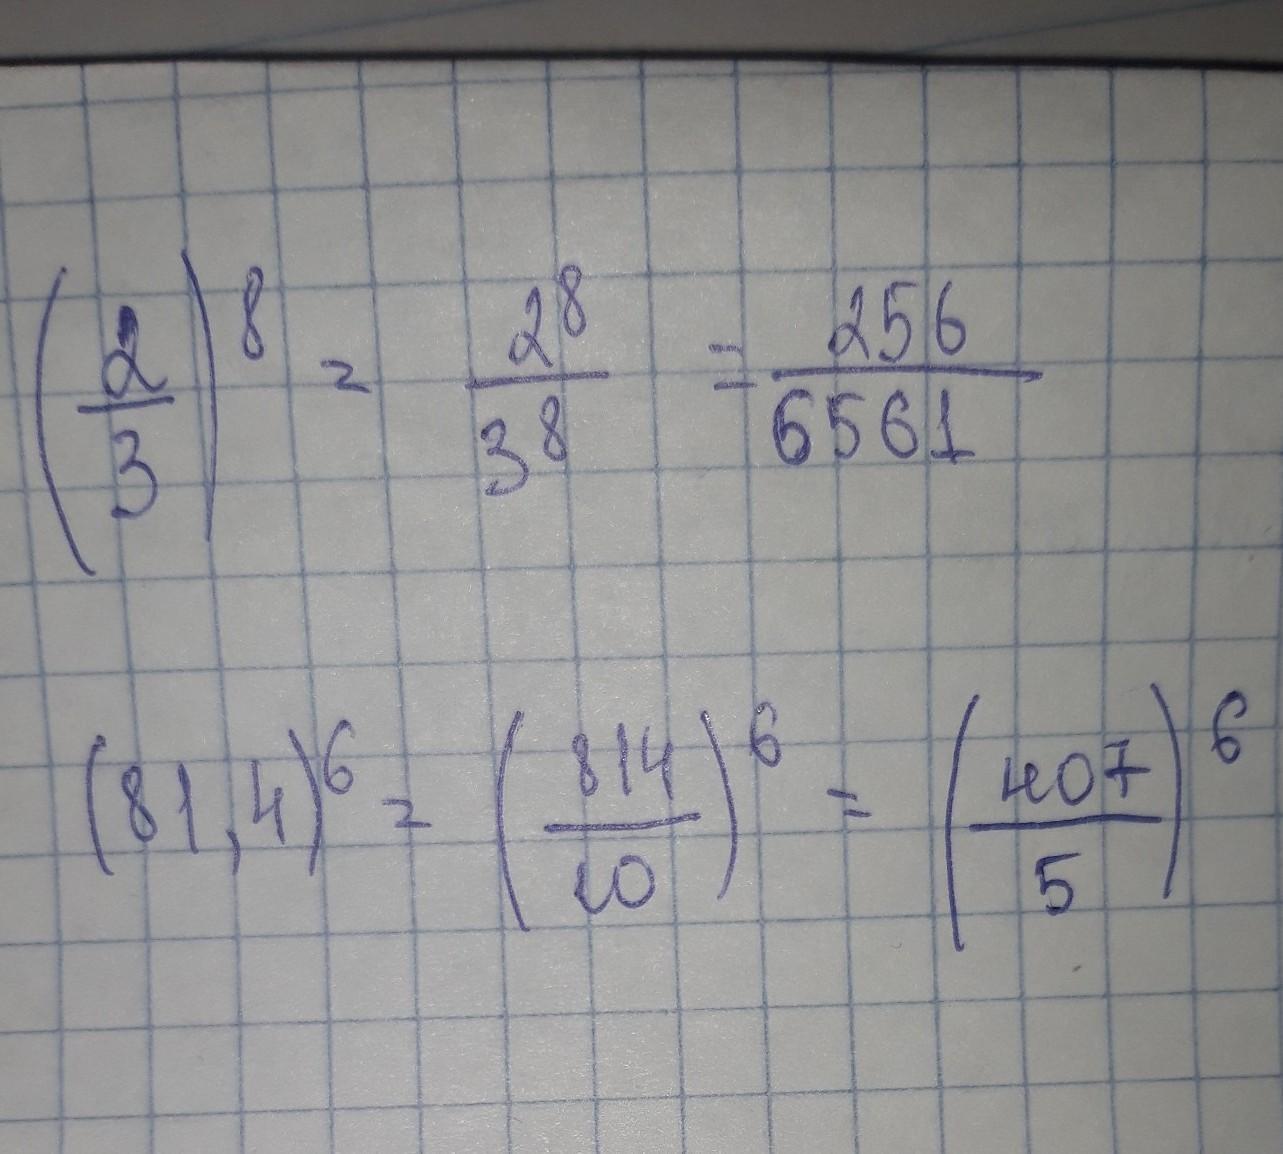 (2/3)^8 = 2^8/3^8 = 256/6561
(81,4)^6 = (814/10)^6 = (407/5)^6